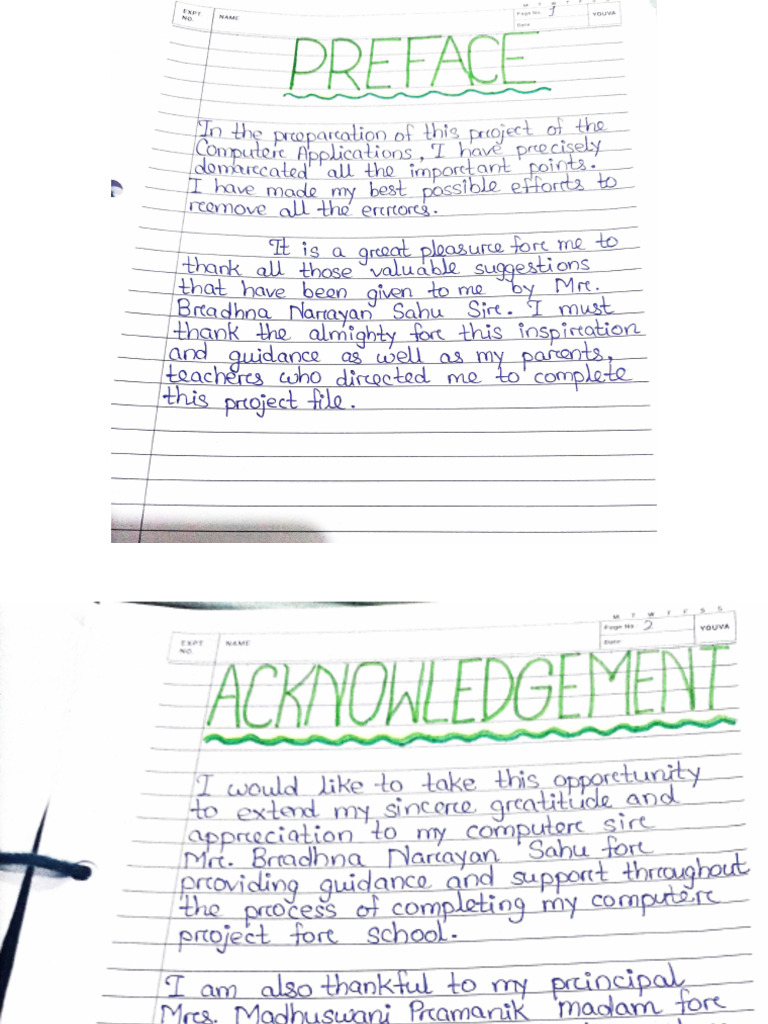 EXPT NO.
NAME
M T W T F S S
Page No. 1
Date
YOUVA
PREFACE
In the preparation of this project of the
Computer Applications, I have precisely
demarcated all the important points.
I have made my best possible efforts to
remove all the errors.
It is a great pleasure for me to
thank all those valuable suggestions
that have been given to me by Mr.
Bradhna Narayan Sahu Sir. I must
thank the almighty for this inspiration
and guidance as well as my parents,
teachers who directed me to complete
this project file.
EXPT NO.
NAME
M T W T F S S
Page No 2
Date
YOUVA
ACKNOWLEDGEMENT
I would like to take this opportunity
to extend my sincere gratitude and
appreciation to my computer sir
Mr. Bradhna Narayan Sahu for
providing guidance and support throughout
the process of completing my computer
project for school.
I am also thankful to my principal
Mrs. Madhuswani Pramanik madam for